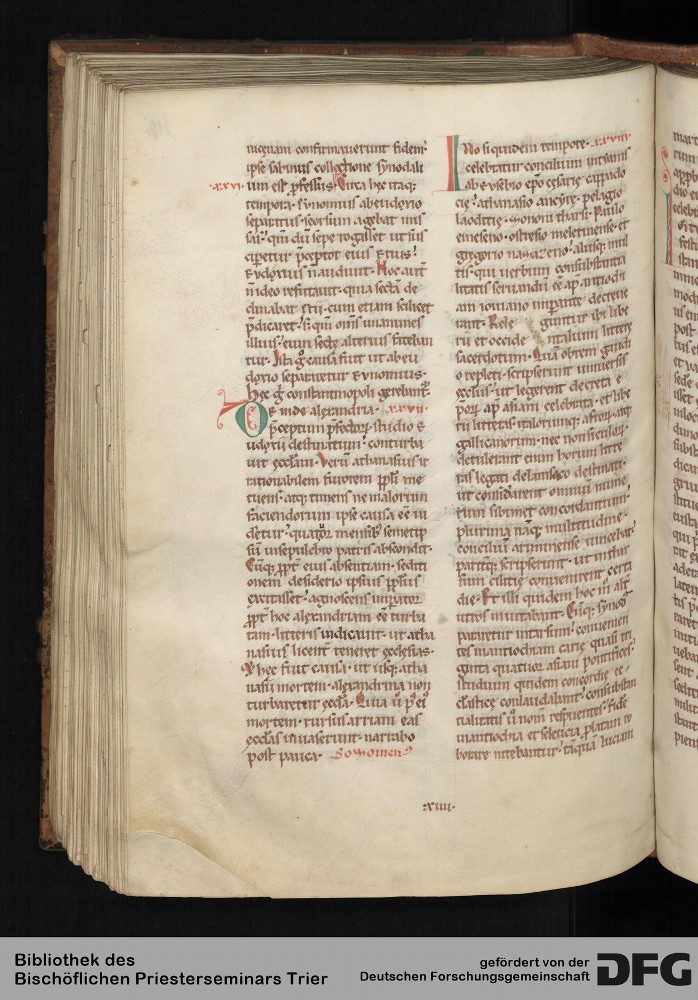 nicenam confirmauerunt fidem.
ipse sabinus collectione synodali
.xxvi. um est p̄fessus. Circa hęc itaq;
tempora. synomius ab eudoxio
separatus. seorsum agebat mis
sas. qm̄ dū sepe rogasset ut sus
ciperetur p̄ceptor eius &tius.
Eudoxius n̄ audiuit. Hoc aut̄
n̄ ideo refutauit. quia sectā de
clinabat
p̄dicaret. s; qm̄ om̄s unanimes
illius. eum sectę alterius fateban
tur. Ista g̊ causa fuit ut ab eu
doxio separaretur eunomius.
Hęc g̊ constantinopoli gerebant̉.
At inde alexandria. .xxvii.
p̄ceptum p̄fectoꝝ. studio e
udoxii destinatum. conturba
uit ęcclam. Verū athanasius ir
rationabilem furorem ppłi me
tuens. atq; timens ne malorum
faciendorum ipse causa eē ui
detur. quatuor mensib; semetip
sū in sepulchro patris abscondit.
Cūq; ꝓpt̄ eius absentiam. sediti
onem desiderio ipsius ppłus
excitasset. agnoscens imperator
ꝓpt̄ hoc alexandriam eē turba
tam. litteris indicauit. ut atha
nasius licent̄ teneret ęcclesias.
Et hęc fuit causa. ut usq; atha
nasii mortem. alexandrina non
turbaretur ęccła. Quia u̅ p̊ ei᷒
mortem. rursus arriani eas
ęccłas inuaserunt. narrabo
post pauca. Sozomen᷒
Ino siquidem tempore. .xxviii.
celebratur concilium in tyanis
ab eusebio epo cesarię cappado
cię. athanasio ancyrę. pelagio
laoditię. zenoni tharsi. Paulo
emeseno. ostreio meletinense. et
gregorio nazazeno. aliisq; mul
tis. qui uerbum consubstantia
litatis seruandū eē ap̄ antiochi
am iouiano imperante decreue
rant. Rele guntur ibi libe
rii et occide ntalium litterę
sacerdotum. Quā obrem gaudi
o repleti. scripserunt uniuersis
ęcclesiis. ut legerent decreta e
poꝝ. ap̄ asiam celebrata. et libe
rii litteras. italorumq; afroꝝ. atq;
gallicanorum. nec non siculoꝝ.
detulerant enim horum litte
ras legati de lansaco destinati.
ut considerarent omniū nume
rum sibimet concordantium.
plurima nāq; multitudine.
conciliū ariminense uincebat.
pariterq; scripserunt. ut in thar
sum cilicię conuenirent certa
die. Et illi quidem hoc m̊ alt̄
utros inuitabant. Cūq; synod᷒
pararetur in tarsum. conuenien
tes in antiochiam carię quasi tri
ginta quatuor asiani pontifices.
studium quidem concordię ec
clesticę conlaudabant. consubstan
tialitatis u̅ nom̄ respuentes. fidē
in antiochia et seleucia p̄latam ro
borare nitebantur. tāquā luciani
.xiiii.
Bibliothek des
Bischöflichen Priesterseminars Trier
gefördert von der
Deutschen Forschungsgemeinschaft
DFG